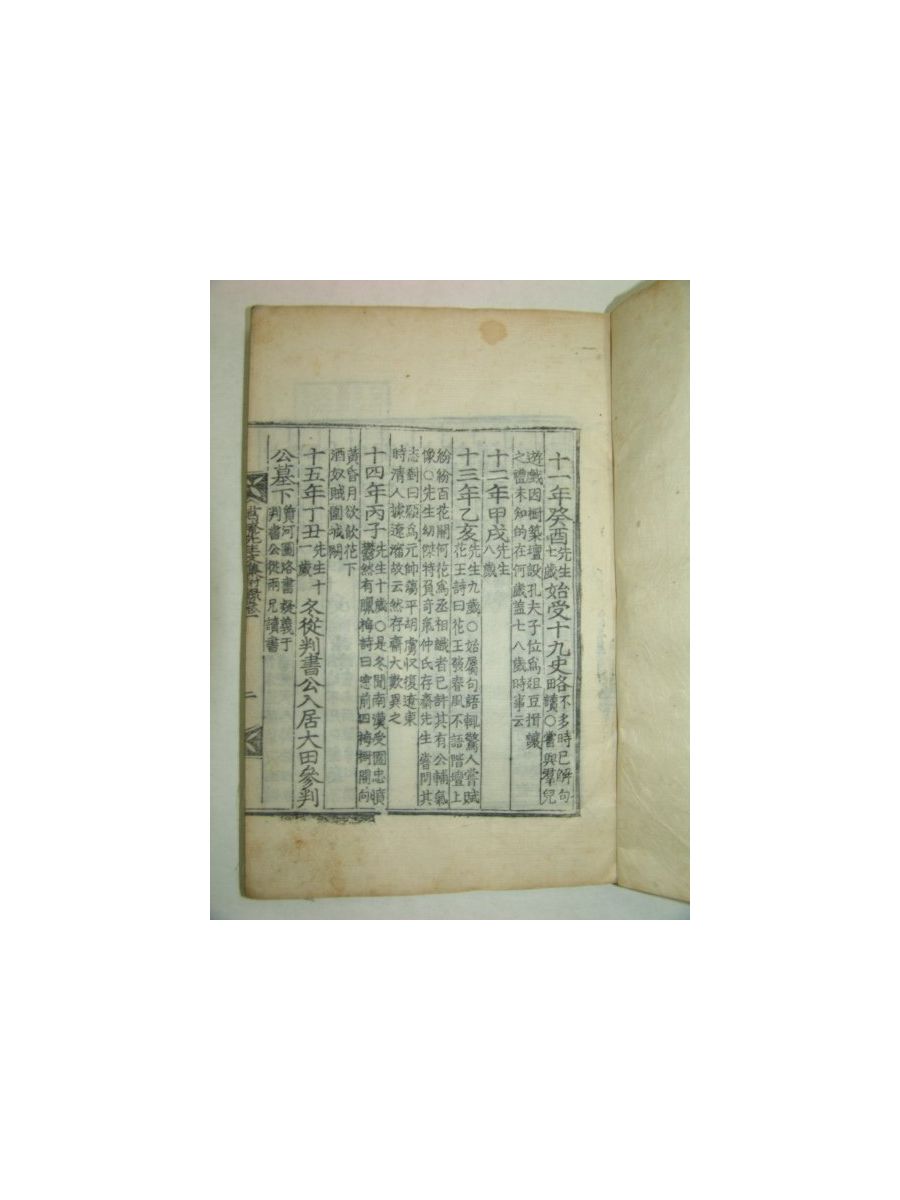 十一年癸酉先生七歲始受十九史略不多時已解句讀○嘗與羣兒
遊戲因樹築壇設孔夫子位爲俎豆揖讓
之禮未知的在何歲盖七八歲時事云
十二年甲戌先生八歲
十三年乙亥先生九歲○始屬句語輒驚人嘗賦
花王詩曰花王發春風不語階壇上
紛紛百花開何花爲丞相識者已許其有公輔氣
像○先生幼傑特負奇氣仲氏存齋先生嘗問其
志對曰願爲元帥蕩平胡虜収復遼東
時清人據遼瀋故云然存齋大歎異之
十四年丙子先生十歲○是冬聞南漢受圍忠憤
鬱然有臘梅詩曰窓前四梅樹開向
黃昏月欲飮花下
酒奴賊圍城闕
十五年丁丑先生十一歲冬從判書公入居大田參判
公墓下質河圖洛書疑義于
判書公從兩兄讀書
先生文集附錄卷一
二